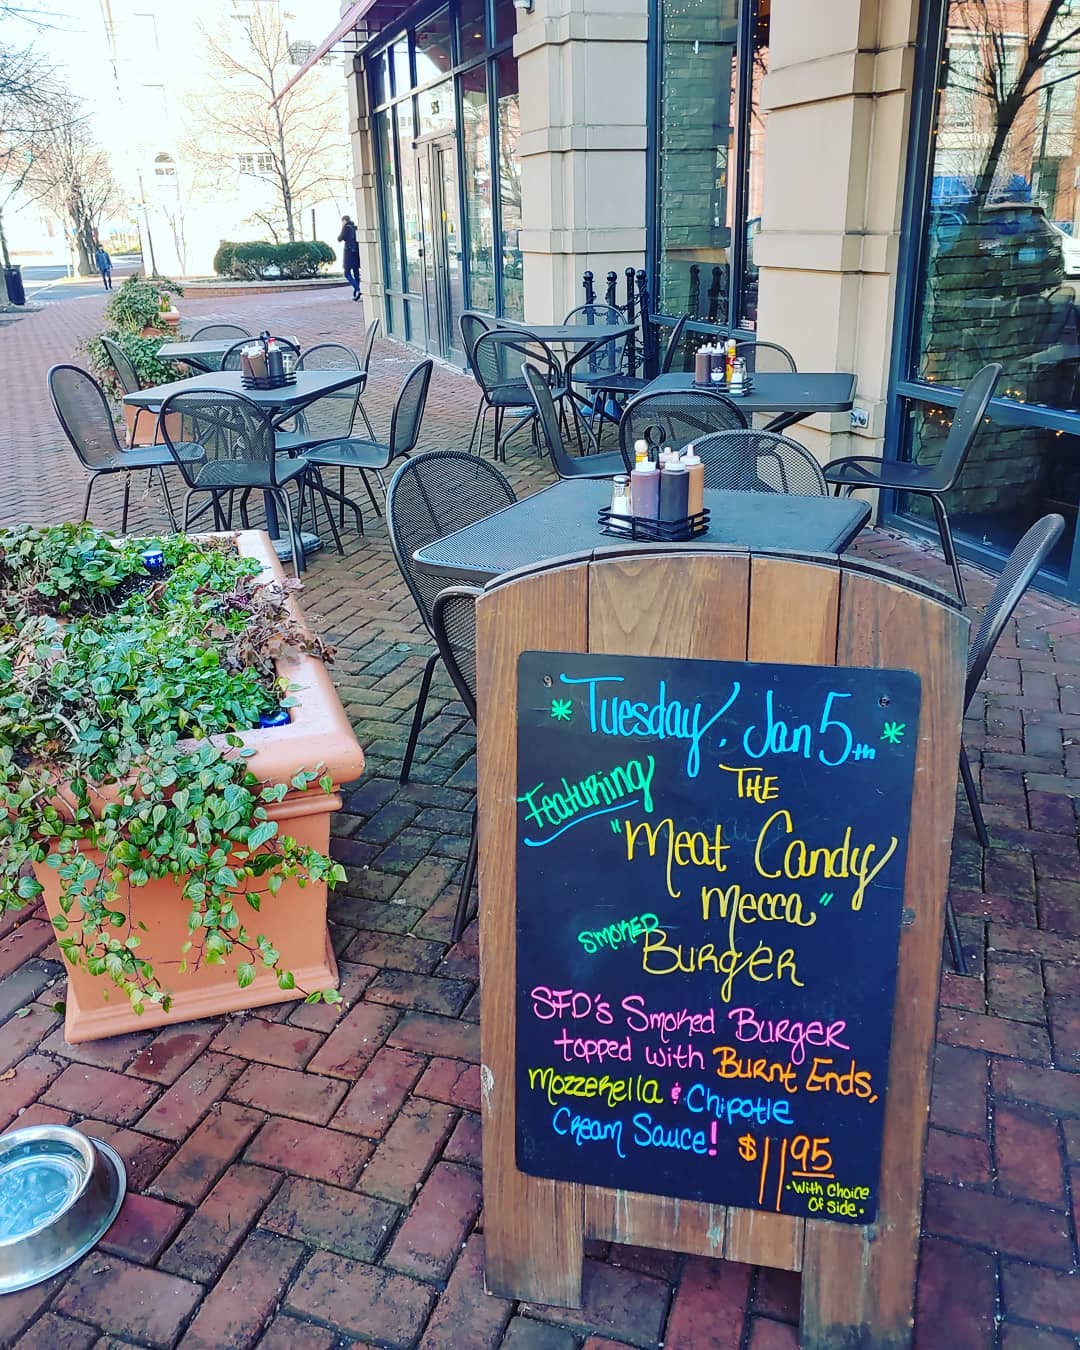 Tuesday, Jan 5th
Featuring
THE
"Meat Candy
Mecca"
Smoked
Burger
SFD's Smoked Burger
topped with Burnt Ends,
Mozzerella & Chipotle
Cream Sauce!
$11.95
·With Choice
Of Side·